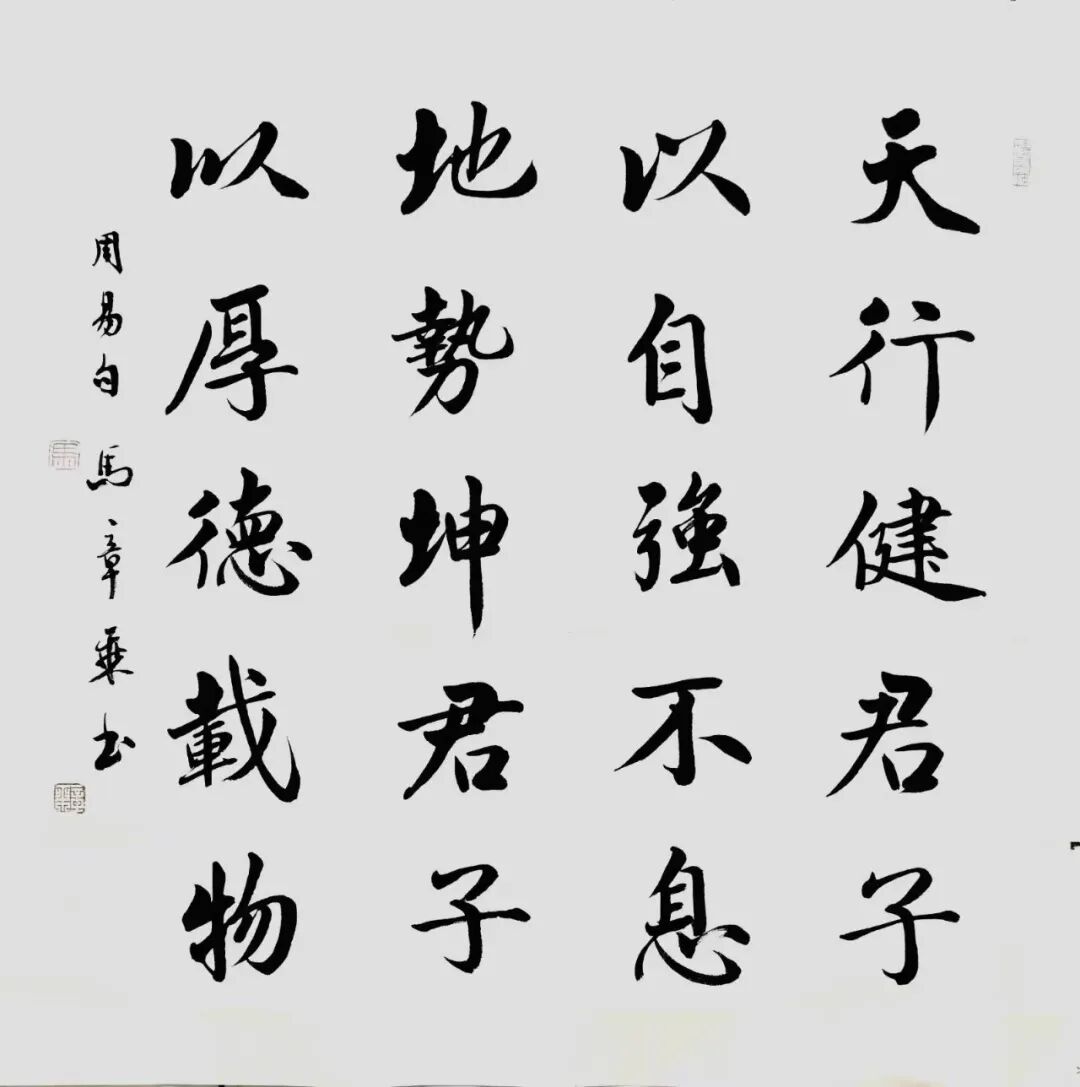 天行健君子
以自強不息
地勢坤君子
以厚德載物
周易句 馬章乗书